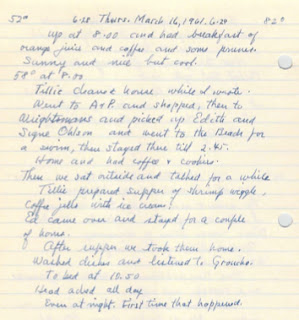 52° 6:28 Thurs. March 16, 1961. 6:29 82°
up at 8.00 and had breakfast of
orange juice and coffee and some prunes.
Sunny and nice but cool.
58° at 8:00
Tillie cleaned house while I wrote.
Went to A & P and shopped, then to
and picked up Edith and
Signe Ohlson and went to the Beach for
a swim, then stayed there till 2.45.
Home and had coffee & cookies.
Then we sat outside and talked for a while
Tillie prepared supper of shrimp wiggle,
Coffee jello with ice cream.
Ed came over and stayed for a couple
of hours.
After supper we took them home.
Washed dishes and listened to Groucho.
To bed at 10.50
Head ached all day
Even at night. First time that happened.